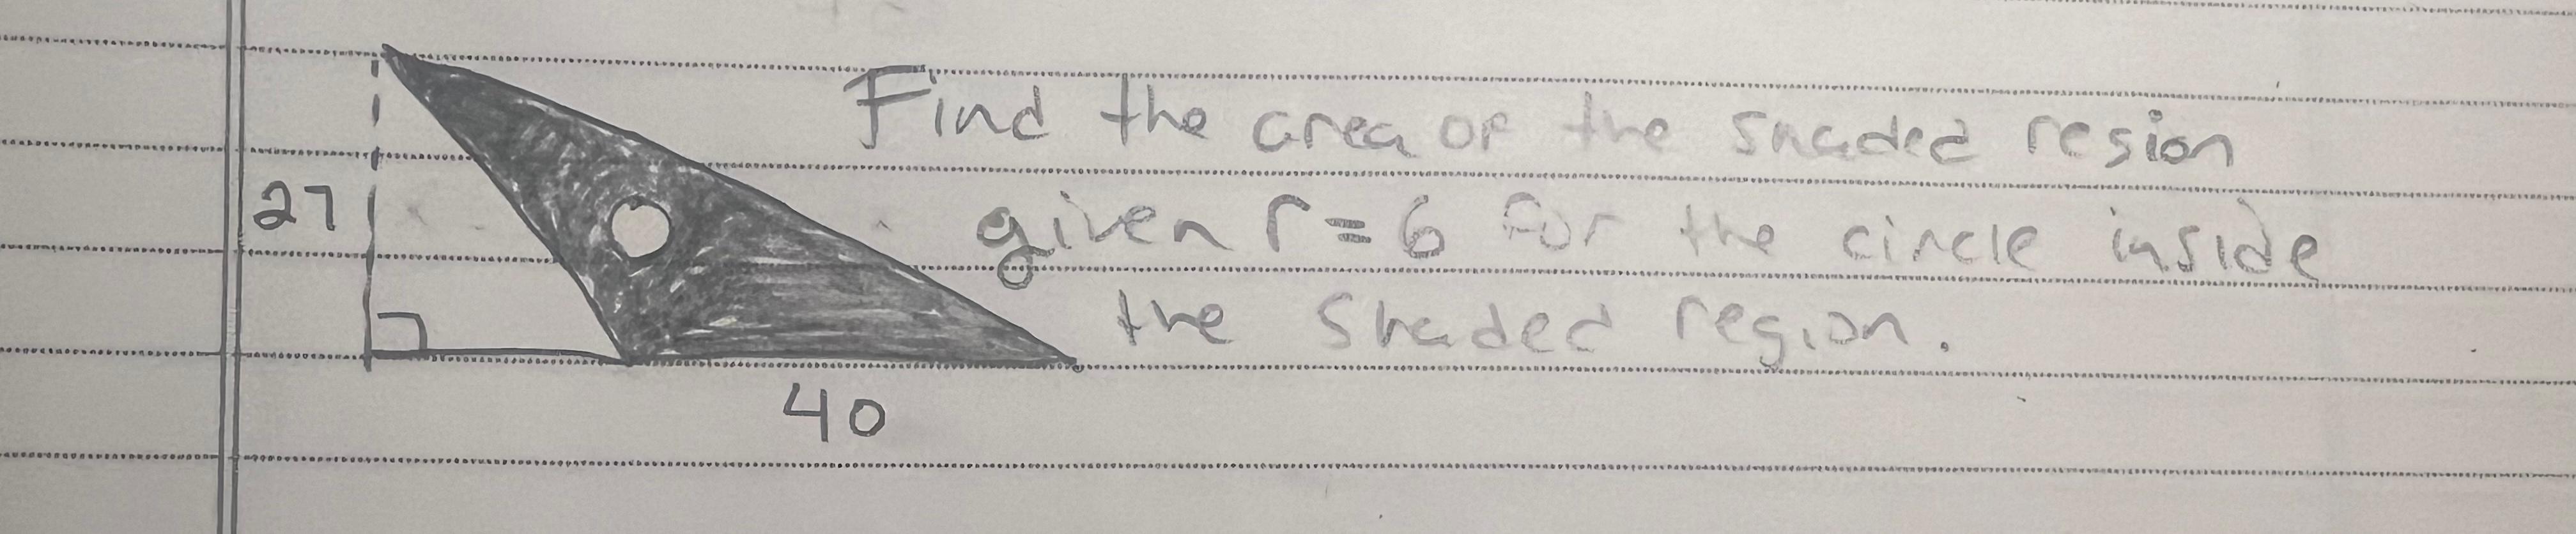 Find the area of the shaded resion
27
given r=6 for the circle inside
the shaded region.
40